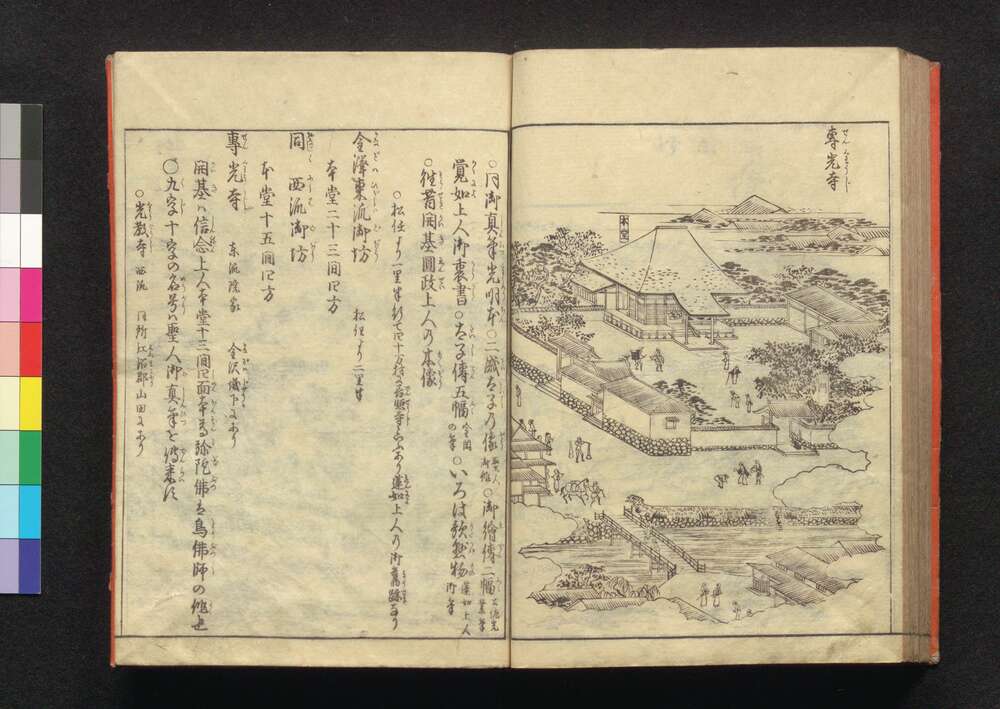 專光寺
せんくわうじ
本堂
○同御真筆光明本○二歳太子の像 聖人御作 ○御繪傳二幅
覚如上人御裏書○太子傳五幅 金岡の筆 ○いろは歌懸物 蓮如上人御筆
○往昔開基圓政上人の木像
○松任より一里半 蓮如上人の御舊跡なり
金澤東流御坊 松任より二里半
本堂二十三間四方
同 西流御坊
本堂十五間四方
專光寺 東流院家 金沢城下にあり
開基は信念上人本堂十三間四面本尊弥陀佛は鳥佛師の作也
○九字十字の名号は聖人御真筆を傳来す
○光教寺 西流 同所江沼郡山田にあり